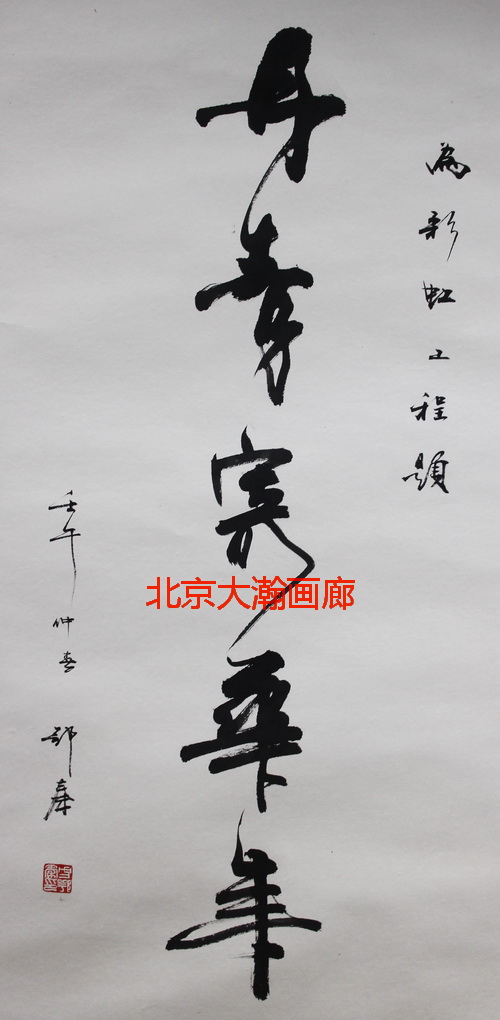 為彩虹工程題
丹青寫華年
壬午仲春
北京大瀚画廊